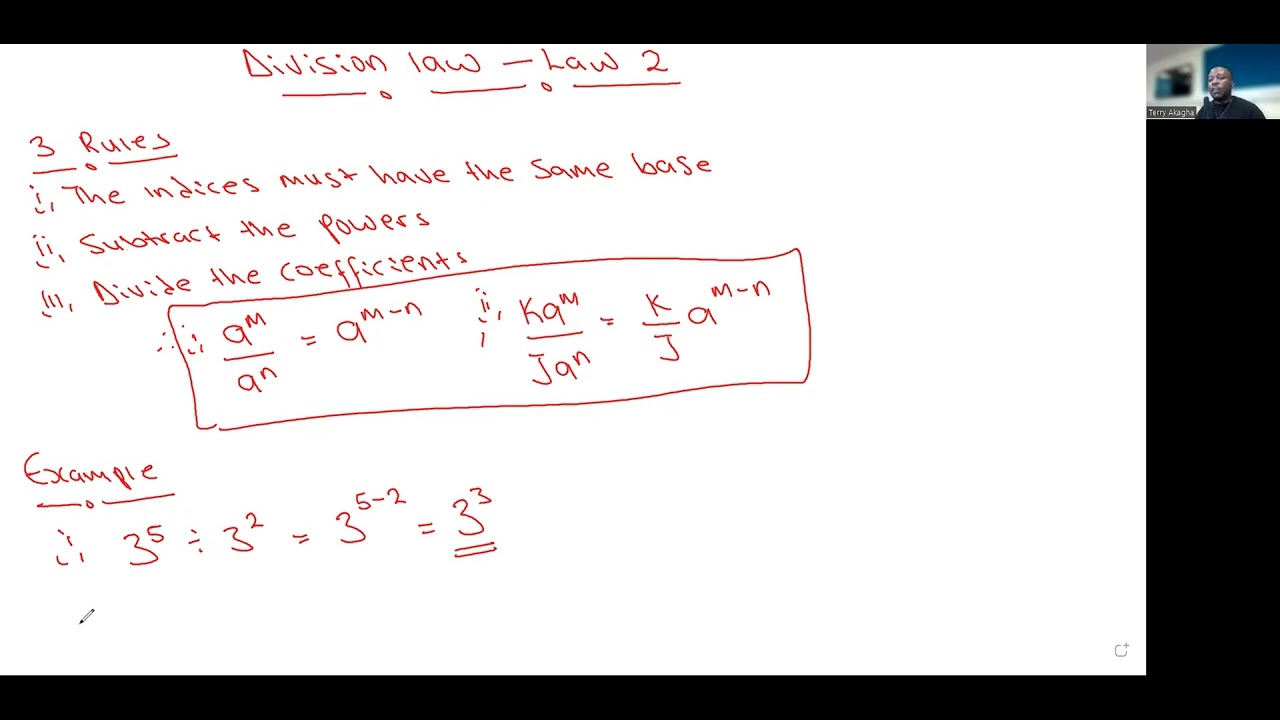 Division law – Law 2
3 Rules
i, The indices must have the same base
ii, Subtract the powers
iii, Divide the coefficients
∴ i, a^m / a^n = a^(m-n) ii, Ka^m / Ja^n = K/J a^(m-n)
Example
i, 3^5 ÷ 3^2 = 3^(5-2) = 3^3
Terry Akagha